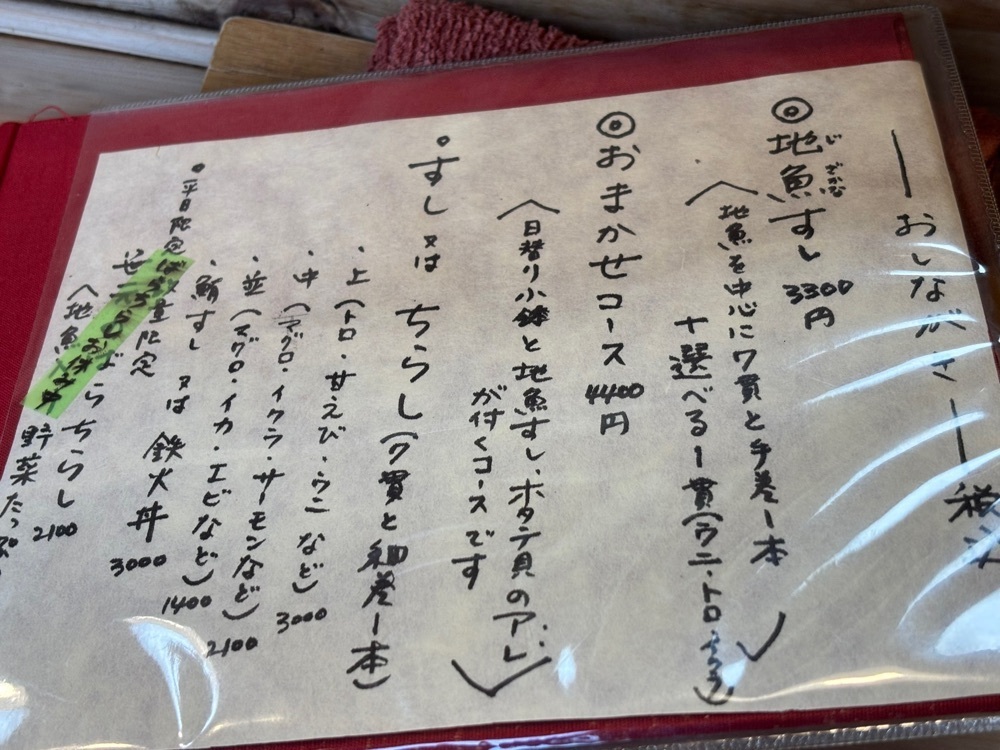 おしながき
税込
◎地魚すし 3300円
じざかな
地魚を中心に7貫と手巻1本
十選べる1貫(ウニ・トロ・イクラ)
◎おまかせコース 4400円
日替り小鉢と地魚すし、ホタテ貝の
が付くコースです
すし又は ちらし(7貫と細巻1本)
・上(トロ・甘えび・ウニ など) 3000
・中(マグロ・イクラ・サーモンなど) 2100
・並(マグロ・イカ・エビなど) 1400
・鮪すし 又は 鉄火丼 3000
平日限定 数量限定
ばらちらしお休み中
ばらちらし 2100
(地魚 野菜たっぷ